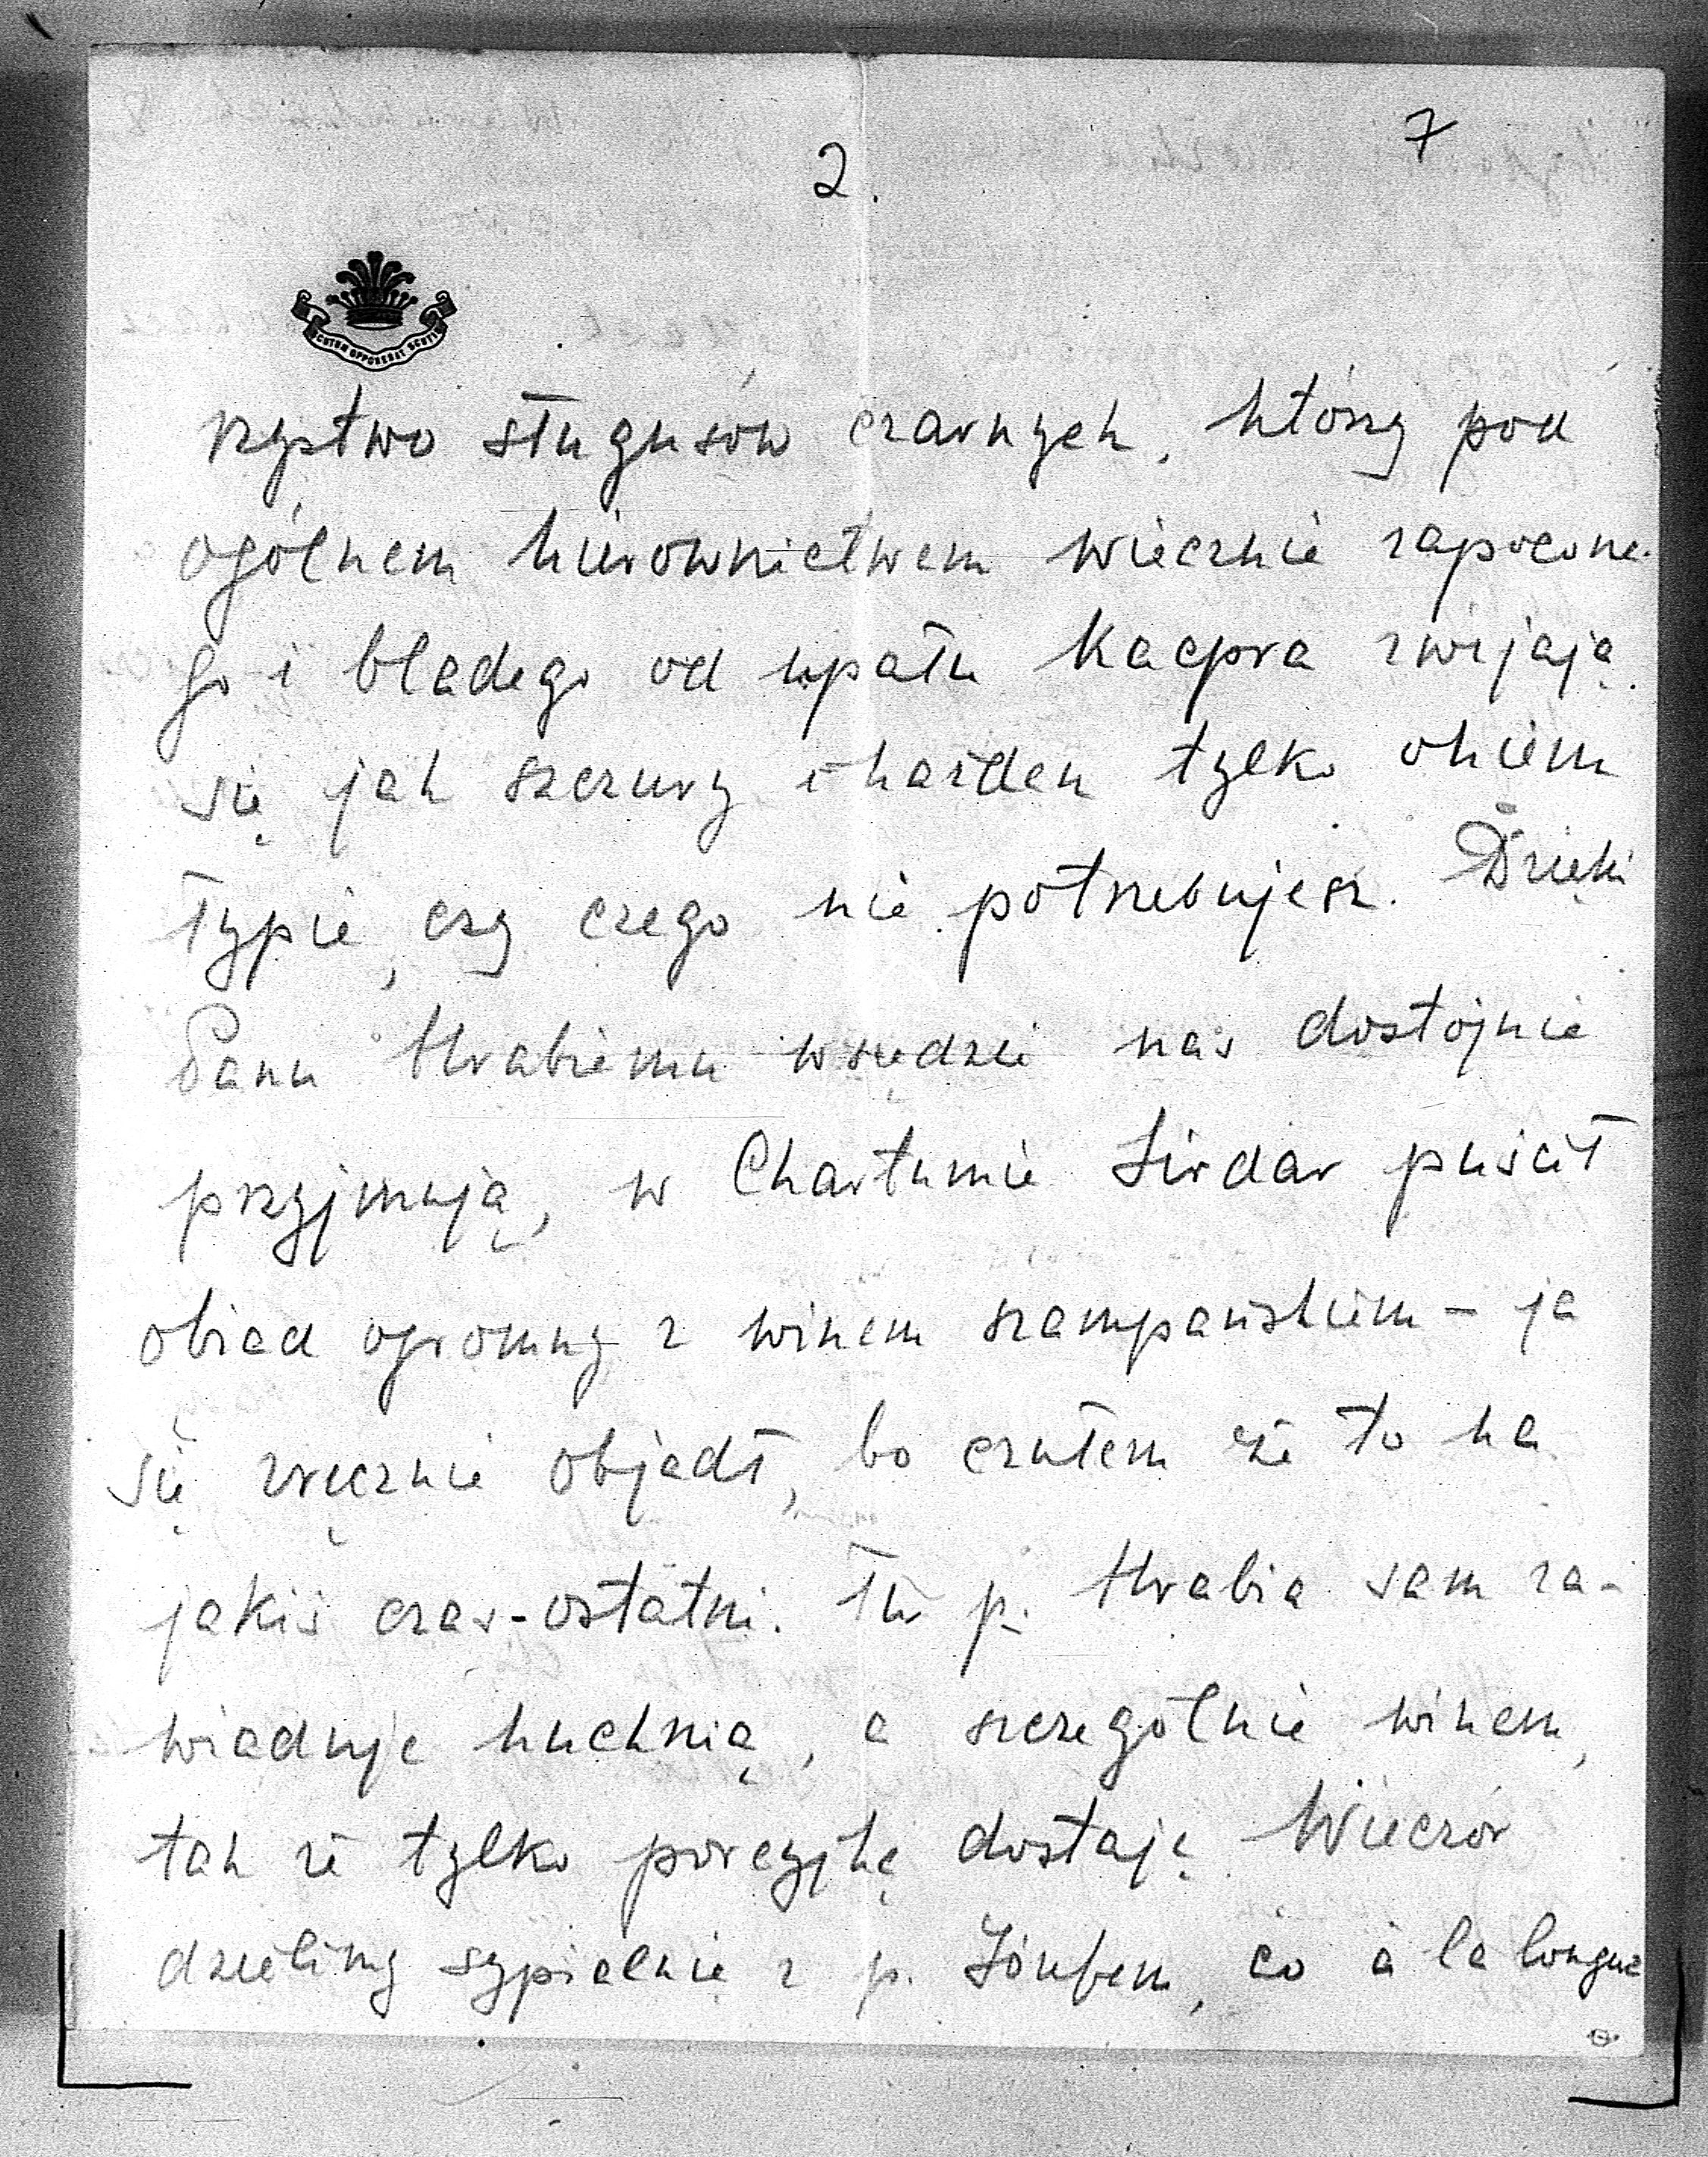 7
2.
SCUTUM OPPONEBAT SCUTIS
rzystwo sługusów czarnych, którzy pod
ogólnem kierownictwem wiecznie zapocone-
go i bladego od upału Kacpra zwijają
się jak szczury i każden tylko okiem
łypie, czy czego nie potrzebujesz. Dzięki
Panu Hrabiemu wszędzie nas dostojnie
przyjmują, w Chartumie Sirdar puścił
obiad ogromny z winem szampańskiem – ja
się zręcznie objadł, bo czułem że to na
jakiś czas - ostatni. Tu p. Hrabia sam za-
wiaduje kuchnią, a szczególnie winem,
tak że tylko porcyjkę dostaję. Wieczór
dzielimy sypialnię z p. Józefem, co à la longue